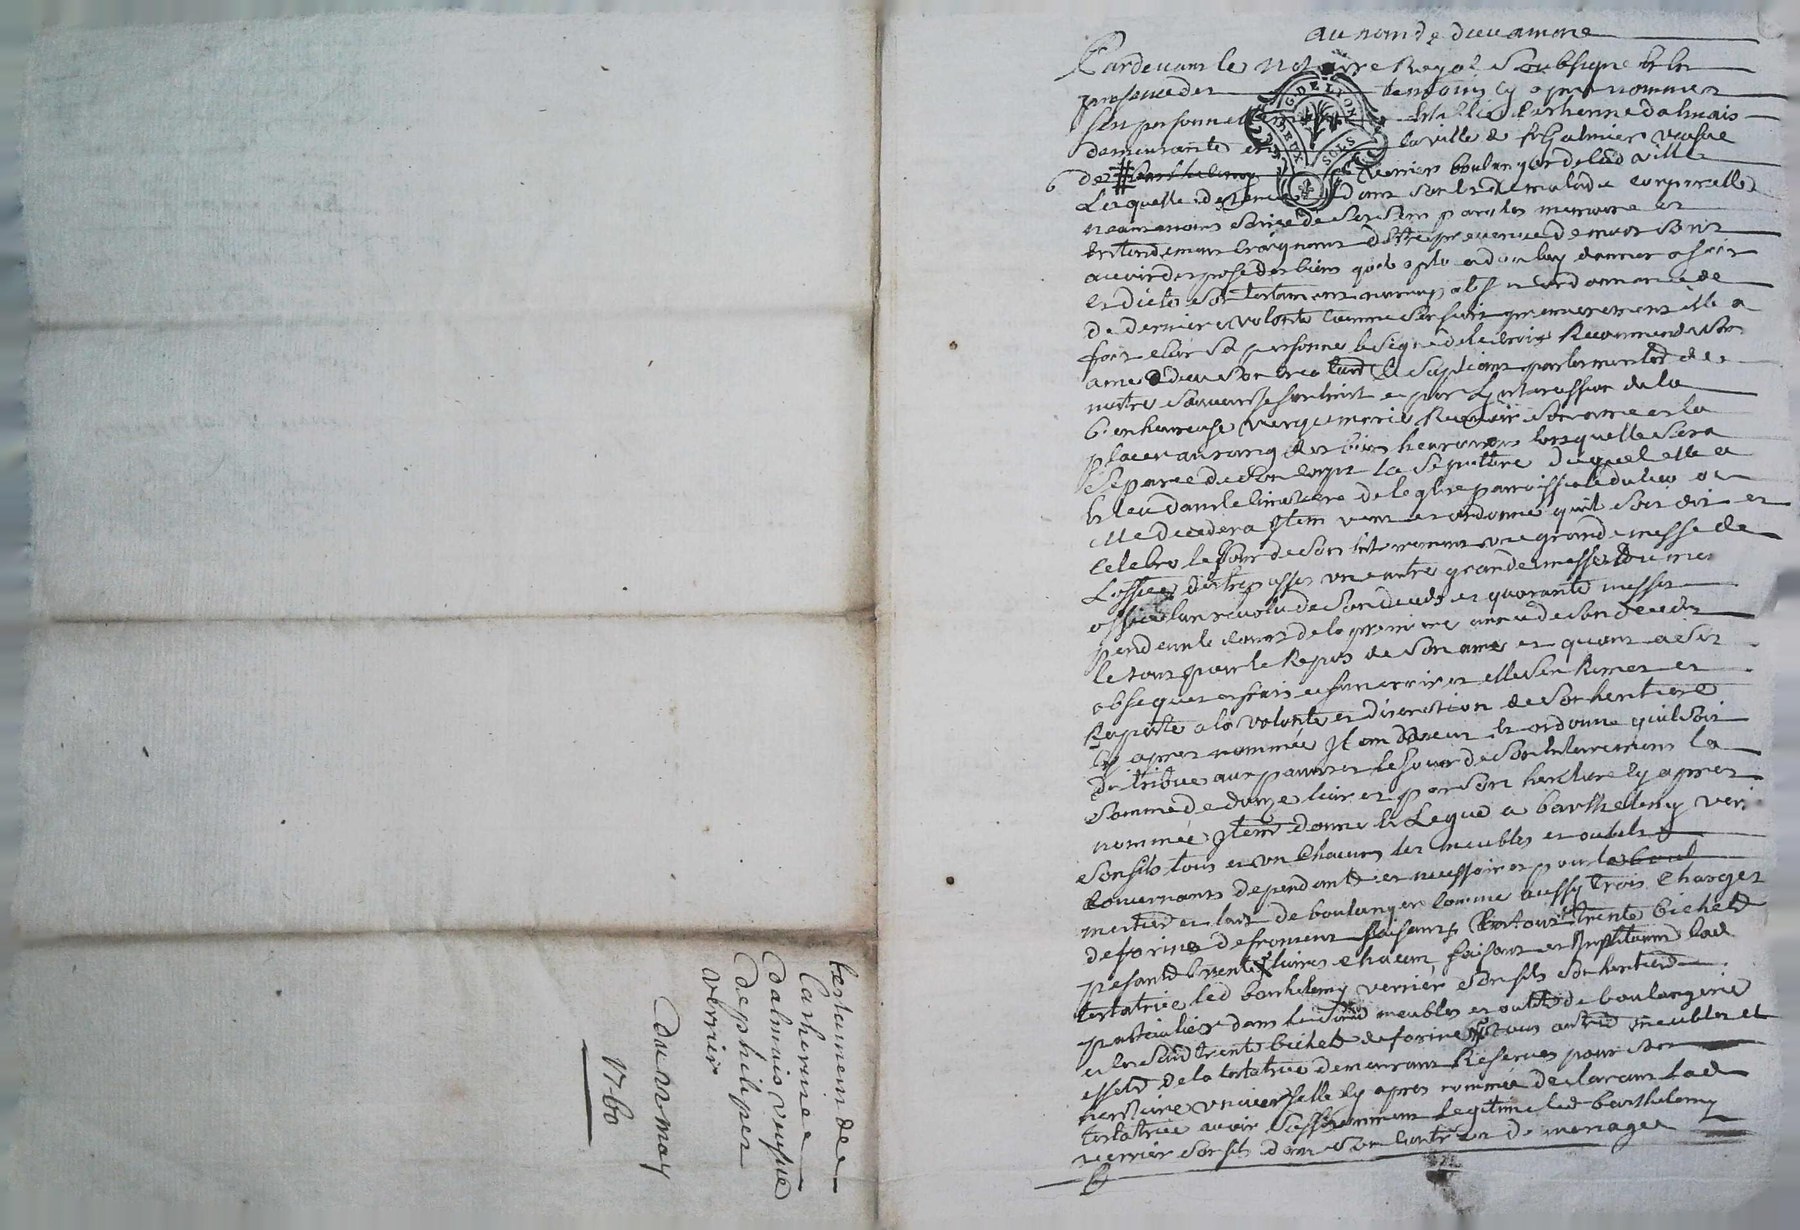 au nom de dieu amene
Pardevant le Notaire Royal Soubsigne et les
presence des temoins cy apres nommes
fut personnellement establie Catherine dalmais
demeurante en la ville de st Galmier veufve
de # Barthelemy Verrier boulanger de lad ville
Laquelle detenue dans son lit de maladie corporelle
neanmoins saine de ses sens parolles memoire et
entendement craignant d'estre prevenue de mort sans
avoir disposé des biens qu'il a plu a dieu luy donner a fait
et dicté son testament nuncupatif et ordonnance de
de derniere volonté comme sensuit premierement elle a
fait sur sa personne le signe de la croix Recommendé son
ame a dieu son createur le supliant par les merites de
nostre sauveur Jesus christ et par Lintercession de la
bienheureuse vierge marie Recevoir son ame et la
placer au rang des bien heureux lors quelle sera
separée de son corps la sepulture duquel elle a
Eleu dans le cimetiere de leglise parroissialle du lieu ou
elle decedera Item veut et ordonne quil soit dit et
celebré le jour de son enterrement une grande messe de
Loffice des trepassés une autre grande messe du mesme
office lan revolu de son decedz et quarante messes
pendant le cours de la premiere année de son decedz
le tout pour le Repos de son ame et quant a ses
obseques et frais funerairies elle s'en Remet et
Raporte a la volonté et discretion de son heritiere
cy apres nommée Item veut et ordonne quil soit
distribué aux pauvres le jour de son enterrement la
somme de douze livres par son heritiere cy apres
nommée Item donne et Legue a barthelemy verrier
son fils tous et un chacuns les meubles et outils
concernants dependants et necessaires pour le boul
mestier et lart de boulanger comme aussy trois charges
de farine de froment faisant en tout trente bichets
pesant trente livres chacun faisant et Instituant lad
testatrice led barthelemy verrier son fils son heritier
particulier dans lesdits meubles et outils de boulangerie
et lesdits trente bichets de farine tous autres meubles et
effets de la testatrice demeurant Reservés pour son
heritiere universelle cy apres nommée declarant lad
testatrice avoir suffisamment legitimé led barthelemy
verrier son fils dans son contrat de mariage
testament de
Catherine
dalmais veufve
de philipes
verrier
Du 12 may
1760